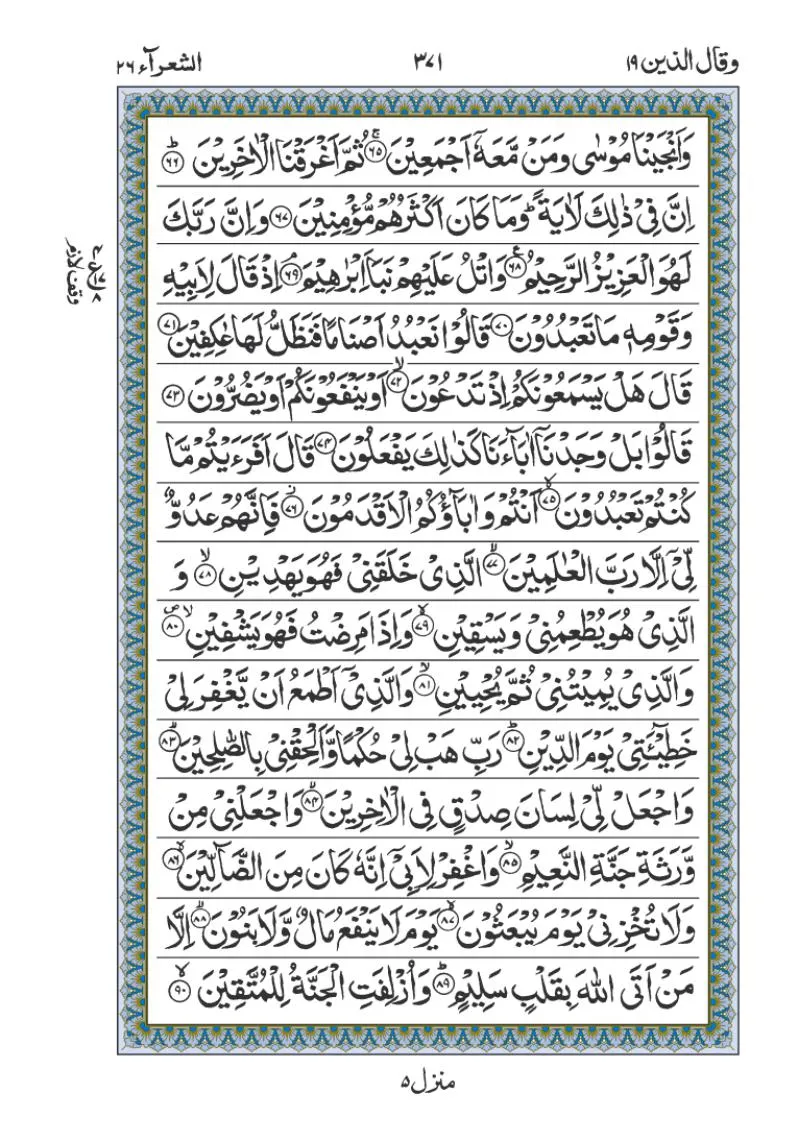 وقال الذين ١٩
٣٧١
الشعرآء ٢٦
وَاَنْجَيْنَا مُوْسٰى وَمَنْ مَّعَهٗۤ اَجْمَعِيْنَ ۚ‏﴿۶۵﴾ ثُمَّ اَغْرَقْنَا الْاٰخَرِيْنَ ؕ‏﴿۶۶﴾
اِنَّ فِىْ ذٰلِكَ لَاٰيَةً ؕ وَمَا كَانَ اَكْثَرُهُمْ مُّؤْمِنِيْنَ ﴿۶۷﴾ وَاِنَّ رَبَّكَ
لَهُوَ الْعَزِيْزُ الرَّحِيْمُ ﴿۶۸﴾ وَاتْلُ عَلَيْهِمْ نَبَاَ اِبْرٰهِيْمَ ۘ‏﴿۶۹﴾ اِذْ قَالَ لِاَبِيْهِ
وَقَوْمِهٖ مَا تَعْبُدُوْنَ ﴿۷۰﴾ قَالُوْا نَعْبُدُ اَصْنَامًا فَنَظَلُّ لَهَا عٰكِفِيْنَ ﴿۷۱﴾
قَالَ هَلْ يَسْمَعُوْنَكُمْ اِذْ تَدْعُوْنَ ۙ‏﴿۷۲﴾ اَوْ يَنْفَعُوْنَكُمْ اَوْ يَضُرُّوْنَ ﴿۷۳﴾
قَالُوْا بَلْ وَجَدْنَاۤ اٰبَآءَنَا كَذٰلِكَ يَفْعَلُوْنَ ﴿۷۴﴾ قَالَ اَفَرَءَيْتُمْ مَّا
كُنْتُمْ تَعْبُدُوْنَ ۙ‏﴿۷۵﴾ اَنْتُمْ وَاٰبَآؤُكُمُ الْاَقْدَمُوْنَ ۖ‏﴿۷۶﴾ فَاِنَّهُمْ عَدُوٌّ
لِّىْۤ اِلَّا رَبَّ الْعٰلَمِيْنَ ۙ‏﴿۷۷﴾ الَّذِىْ خَلَقَنِىْ فَهُوَ يَهْدِيْنِ ۙ‏﴿۷۸﴾ وَ
الَّذِىْ هُوَ يُطْعِمُنِىْ وَيَسْقِيْنِ ۙ‏﴿۷۹﴾ وَاِذَا مَرِضْتُ فَهُوَ يَشْفِيْنِ ۙ‏﴿۸۰﴾
وَالَّذِىْ يُمِيْتُنِىْ ثُمَّ يُحْيِيْنِ ۙ‏﴿۸۱﴾ وَالَّذِىْۤ اَطْمَعُ اَنْ يَّغْفِرَ لِىْ
خَطِيْٓئَتِىْ يَوْمَ الدِّيْنِ ؕ‏﴿۸۲﴾ رَبِّ هَبْ لِىْ حُكْمًا وَّاَلْحِقْنِىْ بِالصّٰلِحِيْنَ ۙ‏﴿۸۳﴾
وَاجْعَلْ لِّىْ لِسَانَ صِدْقٍ فِى الْاٰخِرِيْنَ ۙ‏﴿۸۴﴾ وَاجْعَلْنِىْ مِنْ
وَّرَثَةِ جَنَّةِ النَّعِيْمِ ۙ‏﴿۸۵﴾ وَاغْفِرْ لِاَبِىْۤ اِنَّهٗ كَانَ مِنَ الضَّآلِّيْنَ ۙ‏﴿۸۶﴾
وَلَا تُخْزِنِىْ يَوْمَ يُبْعَثُوْنَ ۙ‏﴿۸۷﴾ يَوْمَ لَا يَنْفَعُ مَالٌ وَّلَا بَنُوْنَ ۙ‏﴿۸۸﴾ اِلَّا
مَنْ اَتَى اللّٰهَ بِقَلْبٍ سَلِيْمٍ ؕ‏﴿۸۹﴾ وَاُزْلِفَتِ الْجَنَّةُ لِلْمُتَّقِيْنَ ۙ‏﴿۹۰﴾
وقف لازم
منزل ۵